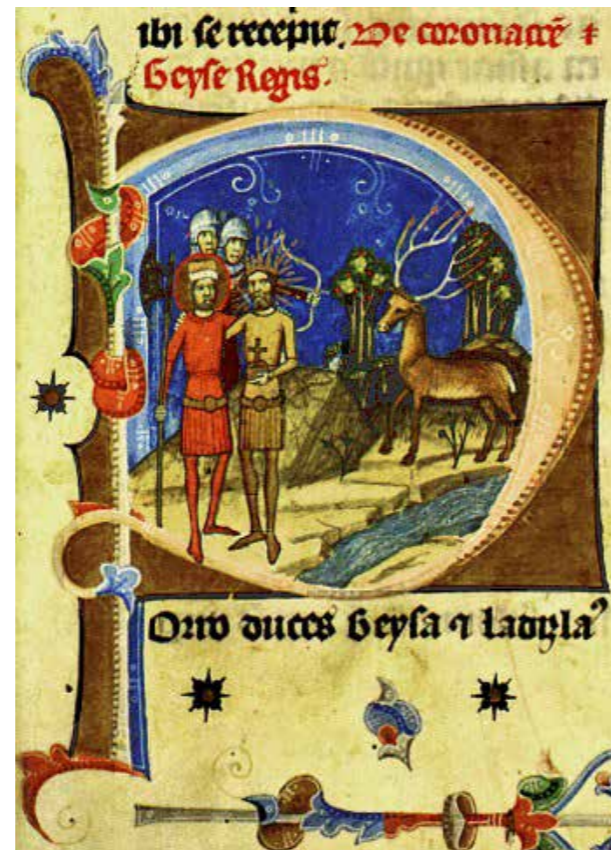 ibi se recepit. De coronacōe ⁊
Geyse Regis.
POrro duces Geysa ⁊ ladizlaꝰ